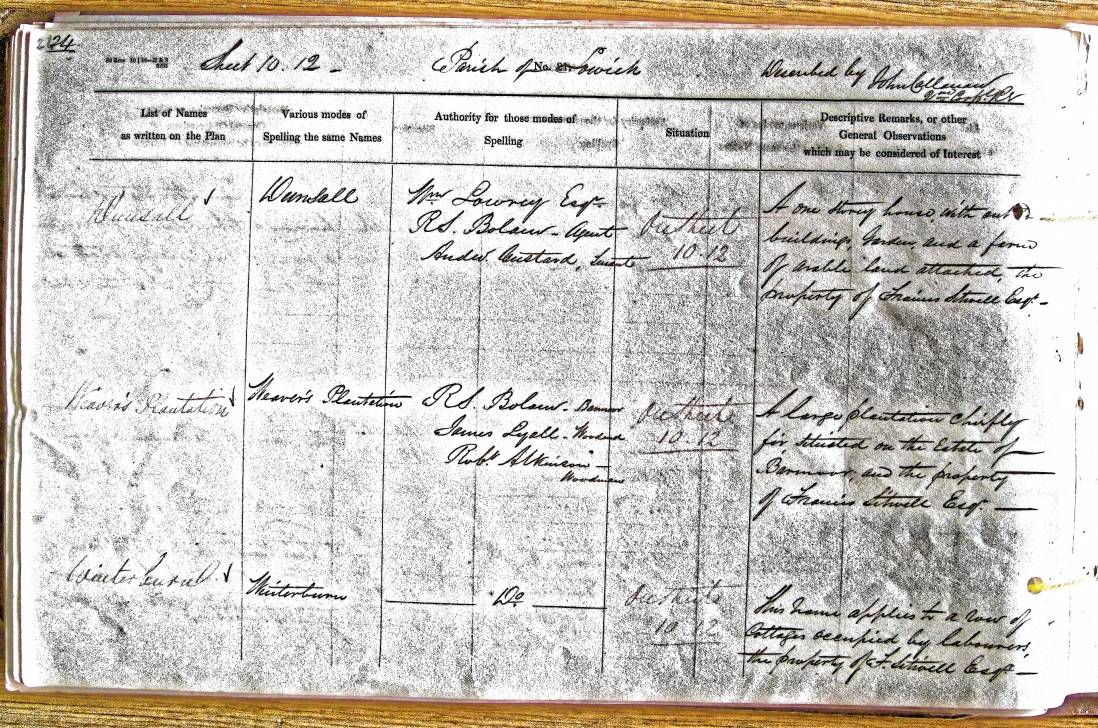 24
Sheet 10.12 - Parish of No. Lowick Described by John Callanan
List of Names
as written on the Plan
Various modes of
Spelling the same Names
Authority for those modes of
Spelling
Situation
Descriptive Remarks, or other
General Observations
which may be considered of Interest
Dunsall
Dunsall
Wm Lowrey Esqr.
RS. Bolam - Agent
Andw. Mustard, Tenant
On Sheet
10.12
A one storey house, with out
buildings, Garden, and a farm
of arable land attached, the
property of Francis Sitwell Esqr. -
Weaver's Plantation
Weaver's Plantation
RS. Bolam - Barmoor
James Lyall - Woodend
Robt. Atkinson -
Woodman
On Sheet
10.12
A large plantation Chiefly
fir situated on the Estate of
Barmoor, and the property
of Francis Sitwell Esqr. -
Winterburn
Winterburn
Do
On Sheet
10.12
This name applies to a row of
Cottages occupied by labourers,
the property of F. Sitwell Esqr -